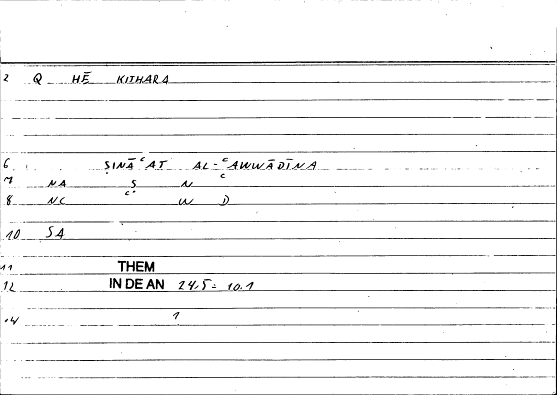 2 Q HĒ KITHARA
6 ṢINĀʿAT AL-ʿAWWĀDĪNA
7 NA S N C
8 NC C W D
10 SA
11 THEM
12 IN DE AN 24,5 = 10.1
14 1